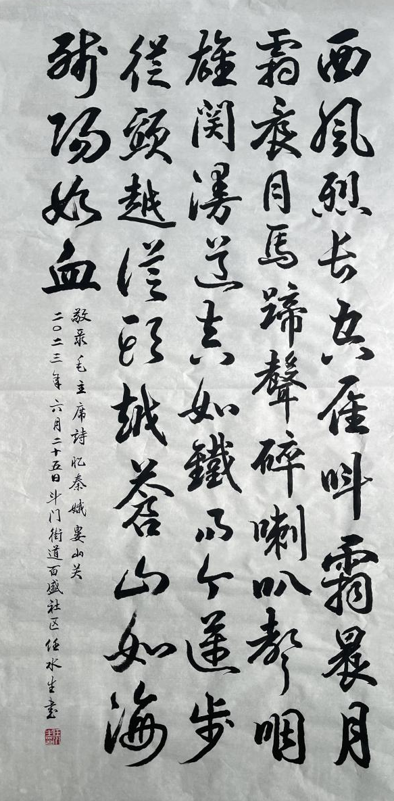 西风烈长空雁叫霜晨月
霜晨月马蹄聲碎喇叭聲咽
雄関漫道真如鐵而今邁步
從頭越從頭越苍山如海
残阳如血
敬录毛主席詩忆秦娥娄山关
二〇二三年六月二十五日斗门街道百盛社区任水生書